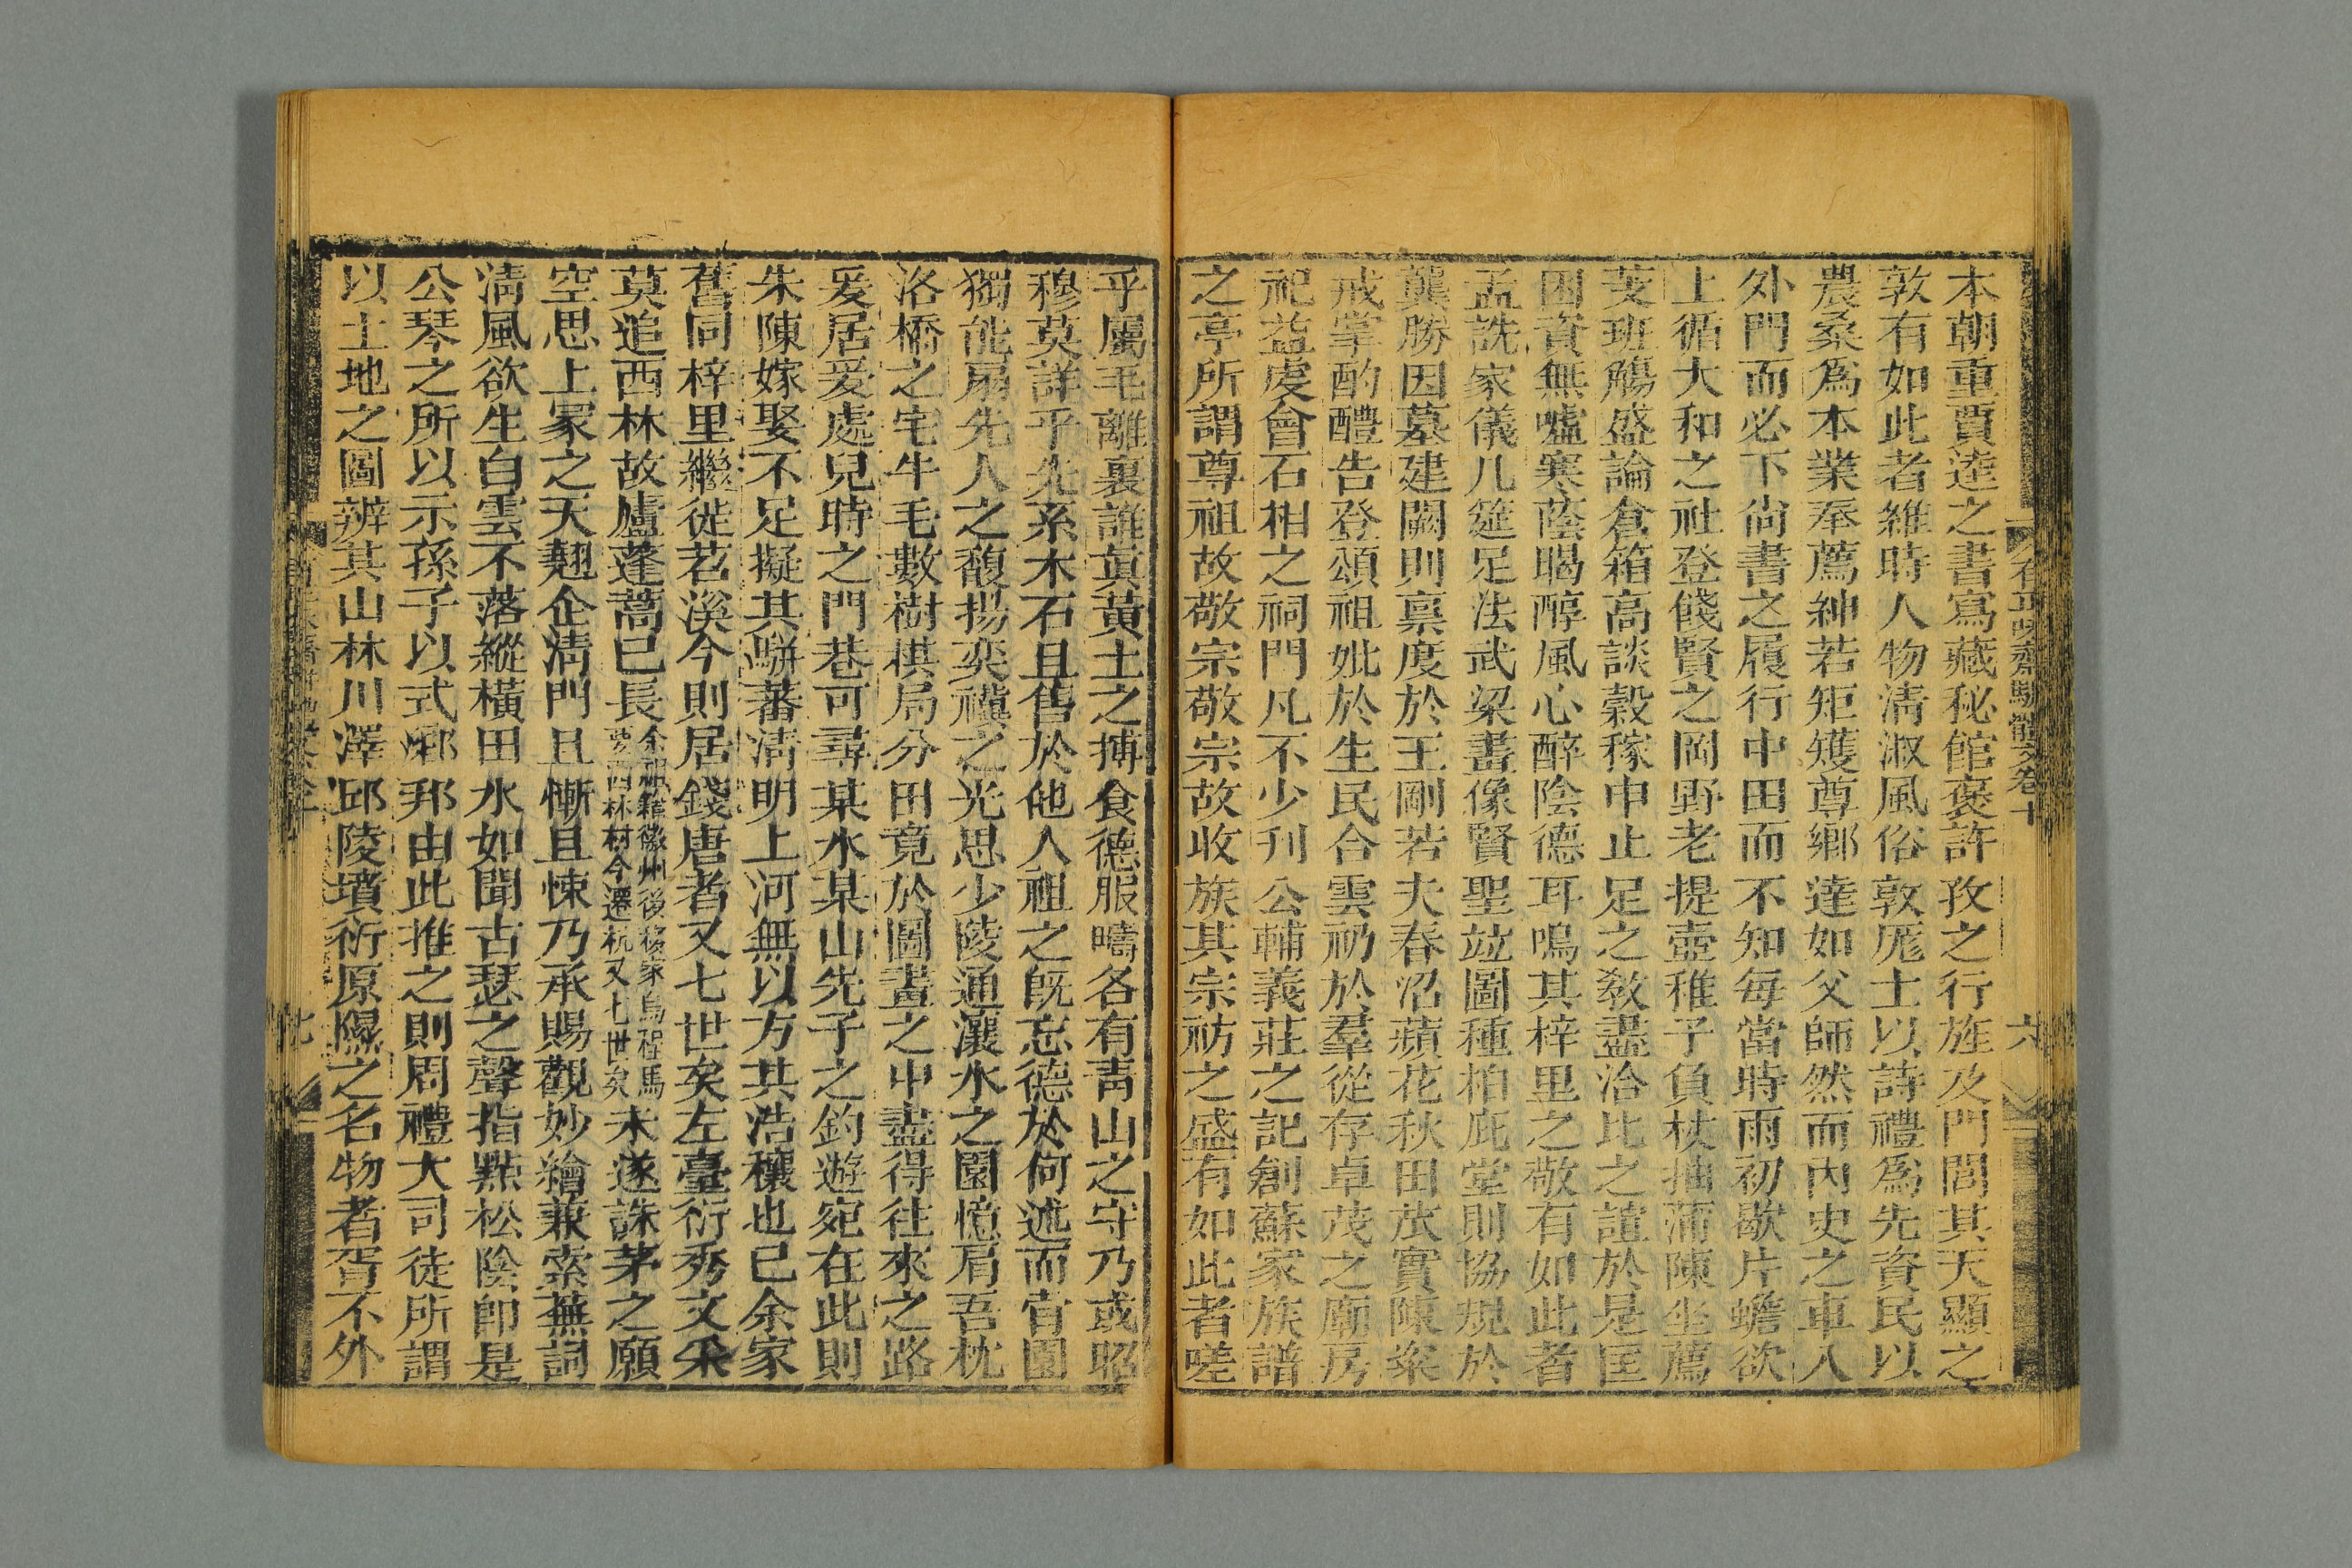 本朝重賈逵之書寫藏秘館褒許孜之行旌及門閭其天顯之
敦有如此者維時人物淸淑風俗敦厖士以詩禮爲先資民以
農桑爲本業奉薦紳若矩矱尊鄉達如父師然而內史之車入
外門而必下尙書之履行中田而不知每當時雨初歇片蟾欲
上循大和之社登餞賢之岡野老提壺稚子負杖抽蒲陳坐薦
芰班觴盛論倉箱高談穀稼中止足之敎盡洽比之誼於是匡
困資無噓寒蔭暍醇風心醉陰德耳鳴其梓里之敬有如此者
孟詵家儀几筵足法武梁畫像賢聖竝圖種柏庇堂則協規於
龔勝因墓建闕則稟度於王剛若夫春沼蘋花秋田茂實陳粢
戒掌酌醴告登頌祖妣於生民合雲礽於羣從存卓茂之廟房
祀益虔會石相之祠門凡不少刊公輔義莊之記創蘇家族譜
之亭所謂尊祖故敬宗敬宗故收族其宗祊之盛有如此者嗟
乎屬毛離裏誰眞黃土之摶食德服疇各有靑山之守乃或昭
穆莫詳乎先系木石且售於他人祖之旣忘德於何述而肯園
獨能扇先人之馥揚奕禩之光思少陵通瀼水之園憶眉吾枕
洛橋之宅牛毛數樹棋局分田竟於圖畫之中盡得往來之路
爰居爰處兒時之門巷可尋某水某山先子之釣遊宛在此則
朱陳嫁娶不足擬其駢蕃淸明上河無以方其浩穰也已余家
舊同梓里繼徙苕溪今則居錢唐者又七世矣左臺衍秀文采
莫追西林故廬蓬蒿已長余祖籍徽州後移家烏程馬
要西林村今遷杭又七世矣未遂誅茅之願
空思上冢之天翹企淸門且慚且悚乃承賜觀妙繪兼索蕪詞
淸風欲生白雲不落縱橫田水如聞古瑟之聲指點松陰卽是
公琴之所以示孫子以式鄉邦由此推之則周禮大司徒所謂
以土地之圖辨其山林川澤邱陵墳衍原隰之名物者胥不外
有正味齋駢體文卷十
六
七